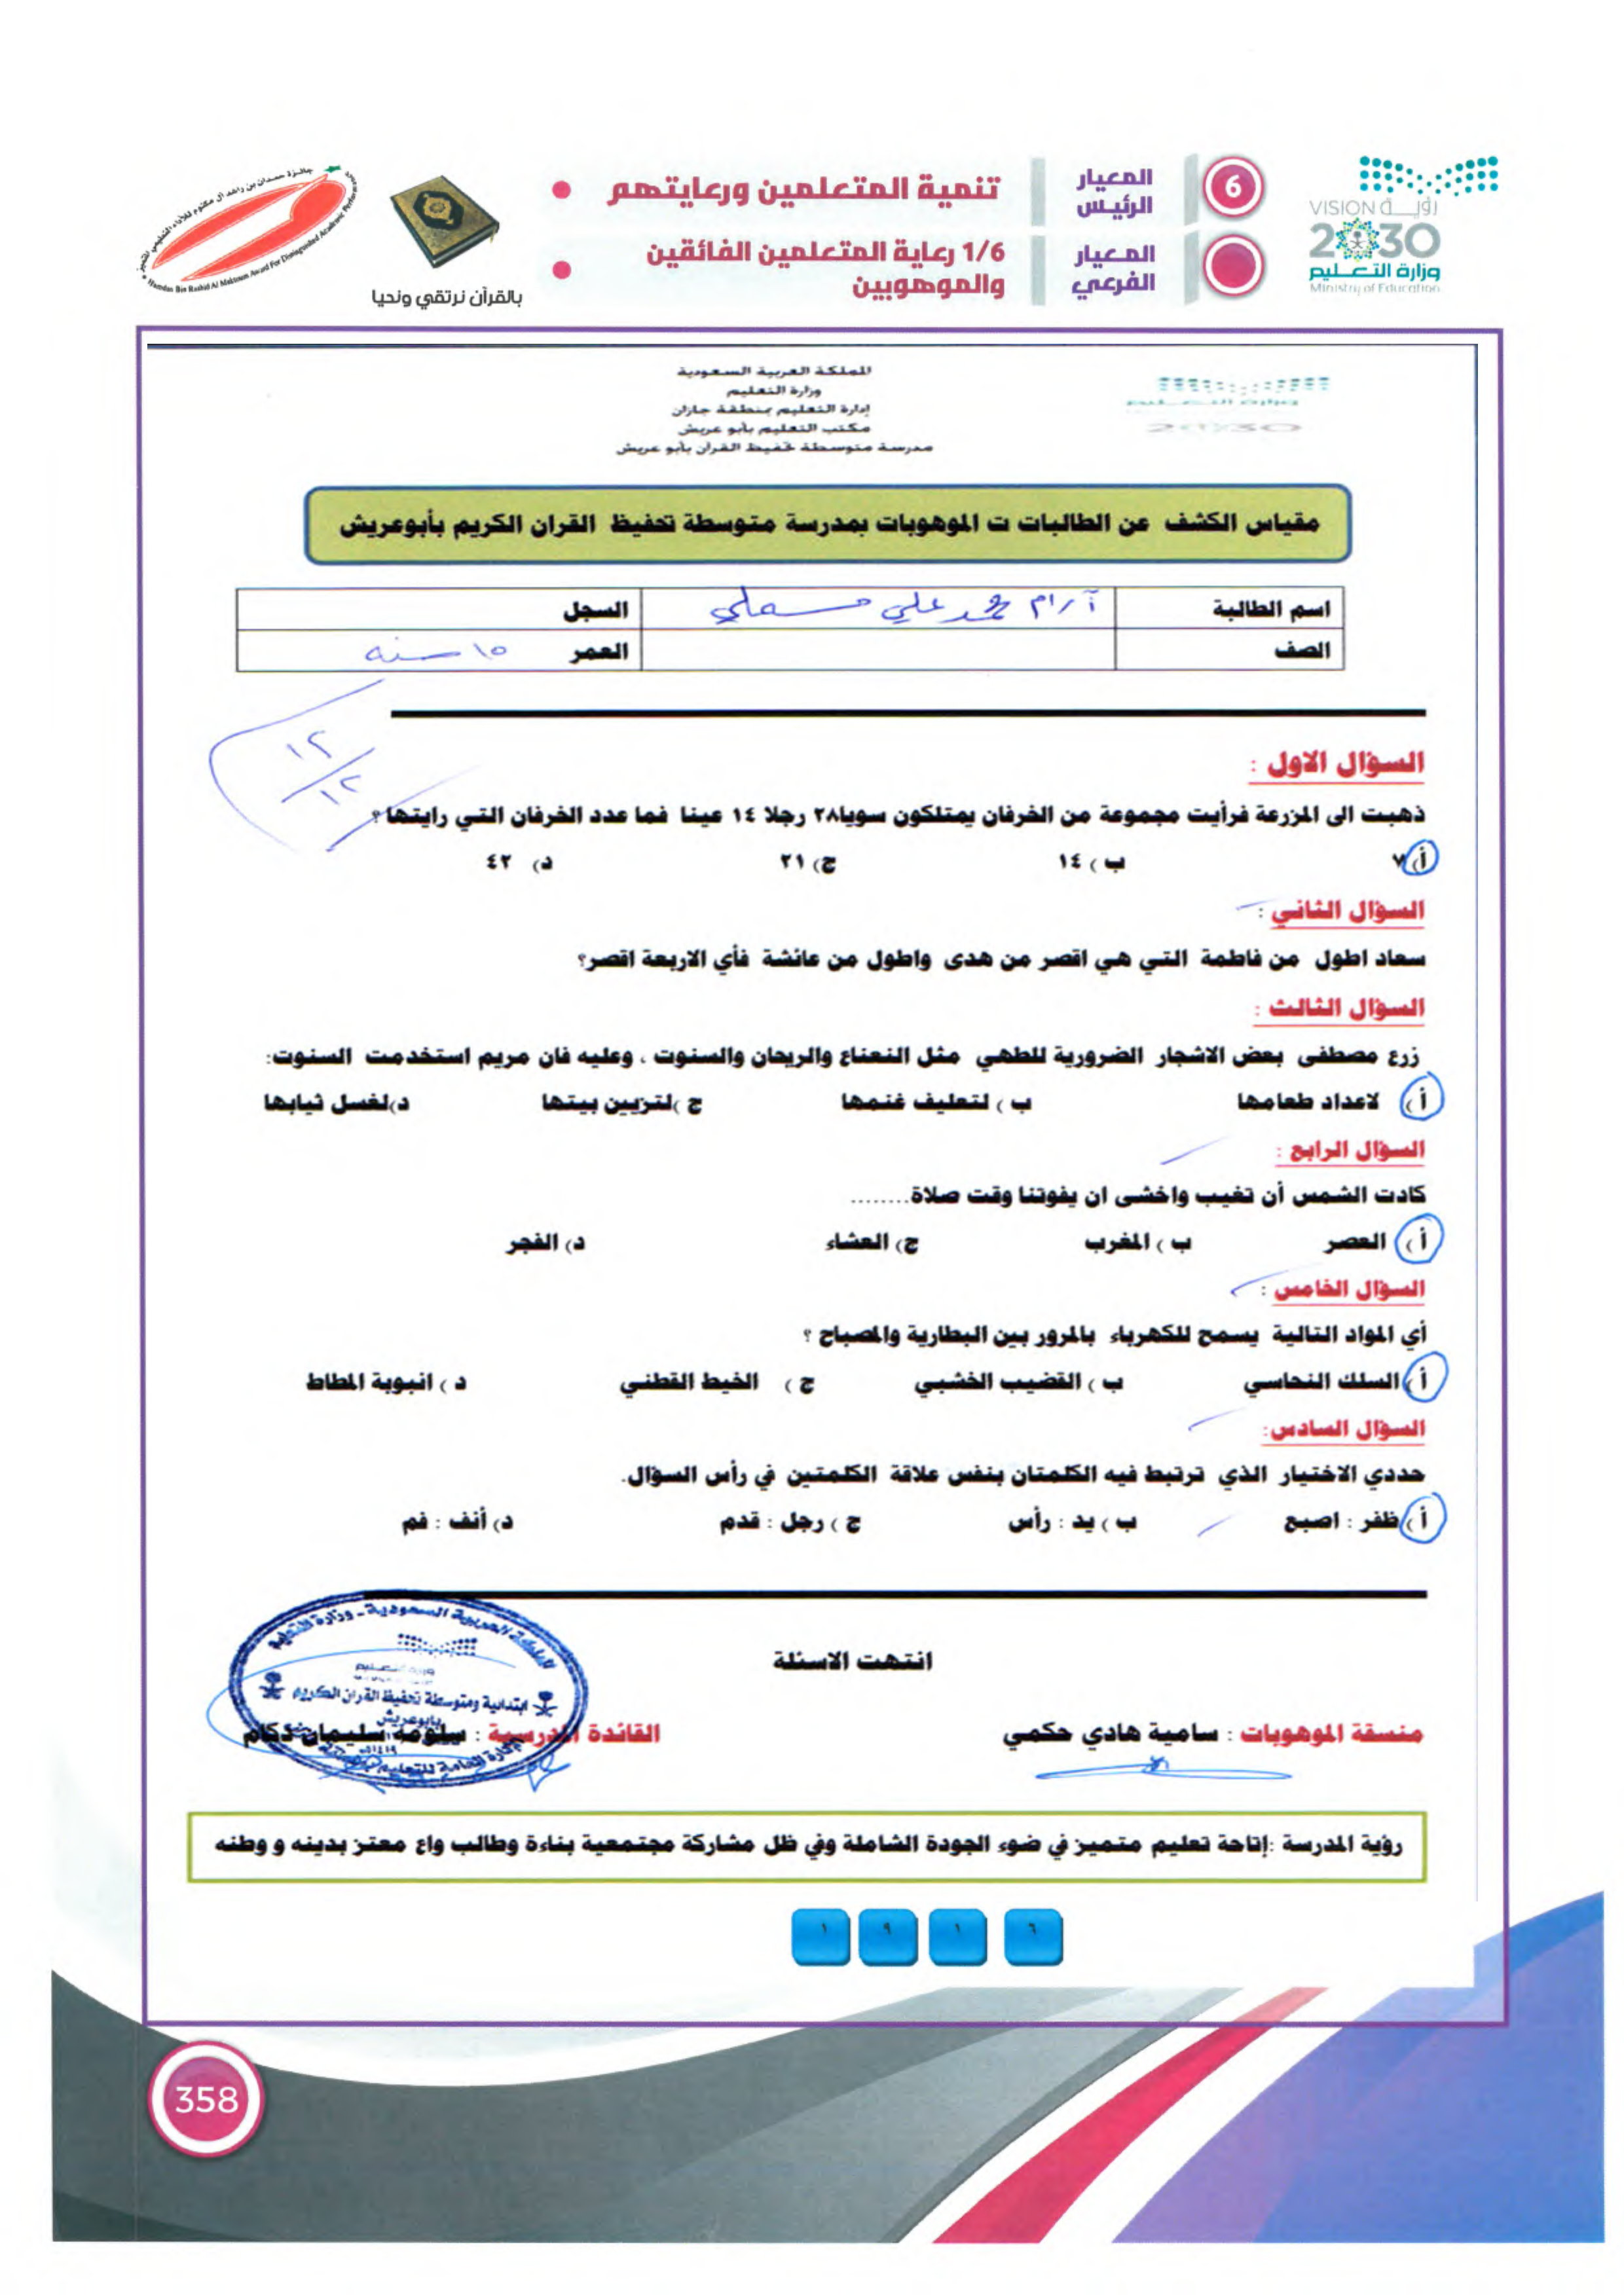 جائزة حمدان بن راشد آل مكتوم للأداء التعليمي المتميز
Hamdan Bin Rashid Al Maktoum Award For Distinguished Academic Performance
بالقرآن نرتقي ونحيا
6
المعيار الرئيس
تنمية المتعلمين ورعايتهم
المعيار الفرعي
1/6 رعاية المتعلمين الفائقين
والموهوبين
VISION رؤيــة
2030
وزارة التعليم
Ministry of Education
المملكة العربية السعودية
وزارة التعليم
إدارة التعليم بمنطقة جازان
مكتب التعليم بأبو عريش
مدرسة متوسطة تحفيظ القرآن بأبو عريش
مقياس الكشف عن الطالبات ت الموهوبات بمدرسة متوسطة تحفيظ القران الكريم بأبوعريش
اسم الطالبة آرام محمد علي مسملي السجل
الصف العمر ١٥ سنه
١٢/١٢
السؤال الاول :
ذهبت الى المزرعة فرأيت مجموعة من الخرفان يمتلكون سويا٢٨ رجلا ١٤ عينا فما عدد الخرفان التي رايتها ؟
أ) ٧ ب ) ١٤ ج) ٢١ د) ٤٢
السؤال الثاني :
سعاد اطول من فاطمة التي هي اقصر من هدى واطول من عائشة فأي الاربعة اقصر؟
السؤال الثالث :
زرع مصطفى بعض الاشجار الضرورية للطهي مثل النعناع والريحان والسنوت ، وعليه فان مريم استخدمت السنوت:
أ ) لاعداد طعامها ب ) لتعليف غنمها ج )لتزيين بيتها د)لغسل ثيابها
السؤال الرابع :
كادت الشمس أن تغيب واخشى ان يفوتنا وقت صلاة........
أ ) العصر ب ) المغرب ج) العشاء د) الفجر
السؤال الخامس :
أي المواد التالية يسمح للكهرباء بالمرور بين البطارية والمصباح ؟
أ ) السلك النحاسي ب ) القضيب الخشبي ج ) الخيط القطني د ) انبوبة المطاط
السؤال السادس:
حددي الاختيار الذي ترتبط فيه الكلمتان بنفس علاقة الكلمتين في رأس السؤال.
أ ) ظفر : اصبع ب ) يد : رأس ج ) رجل : قدم د) أنف : فم
انتهت الاسئلة
منسقة الموهوبات : سامية هادي حكمي القائدة المدرسية : سلومه سليمان دكام
المملكة العربية السعودية - وزارة التعليم
ابتدائية ومتوسطة تحفيظ القران الكريم
بأبوعريش
رؤية المدرسة :إتاحة تعليم متميز في ضوء الجودة الشاملة وفي ظل مشاركة مجتمعية بناءة وطالب واع معتز بدينه و وطنه
١ ٩ ١ ٦
358